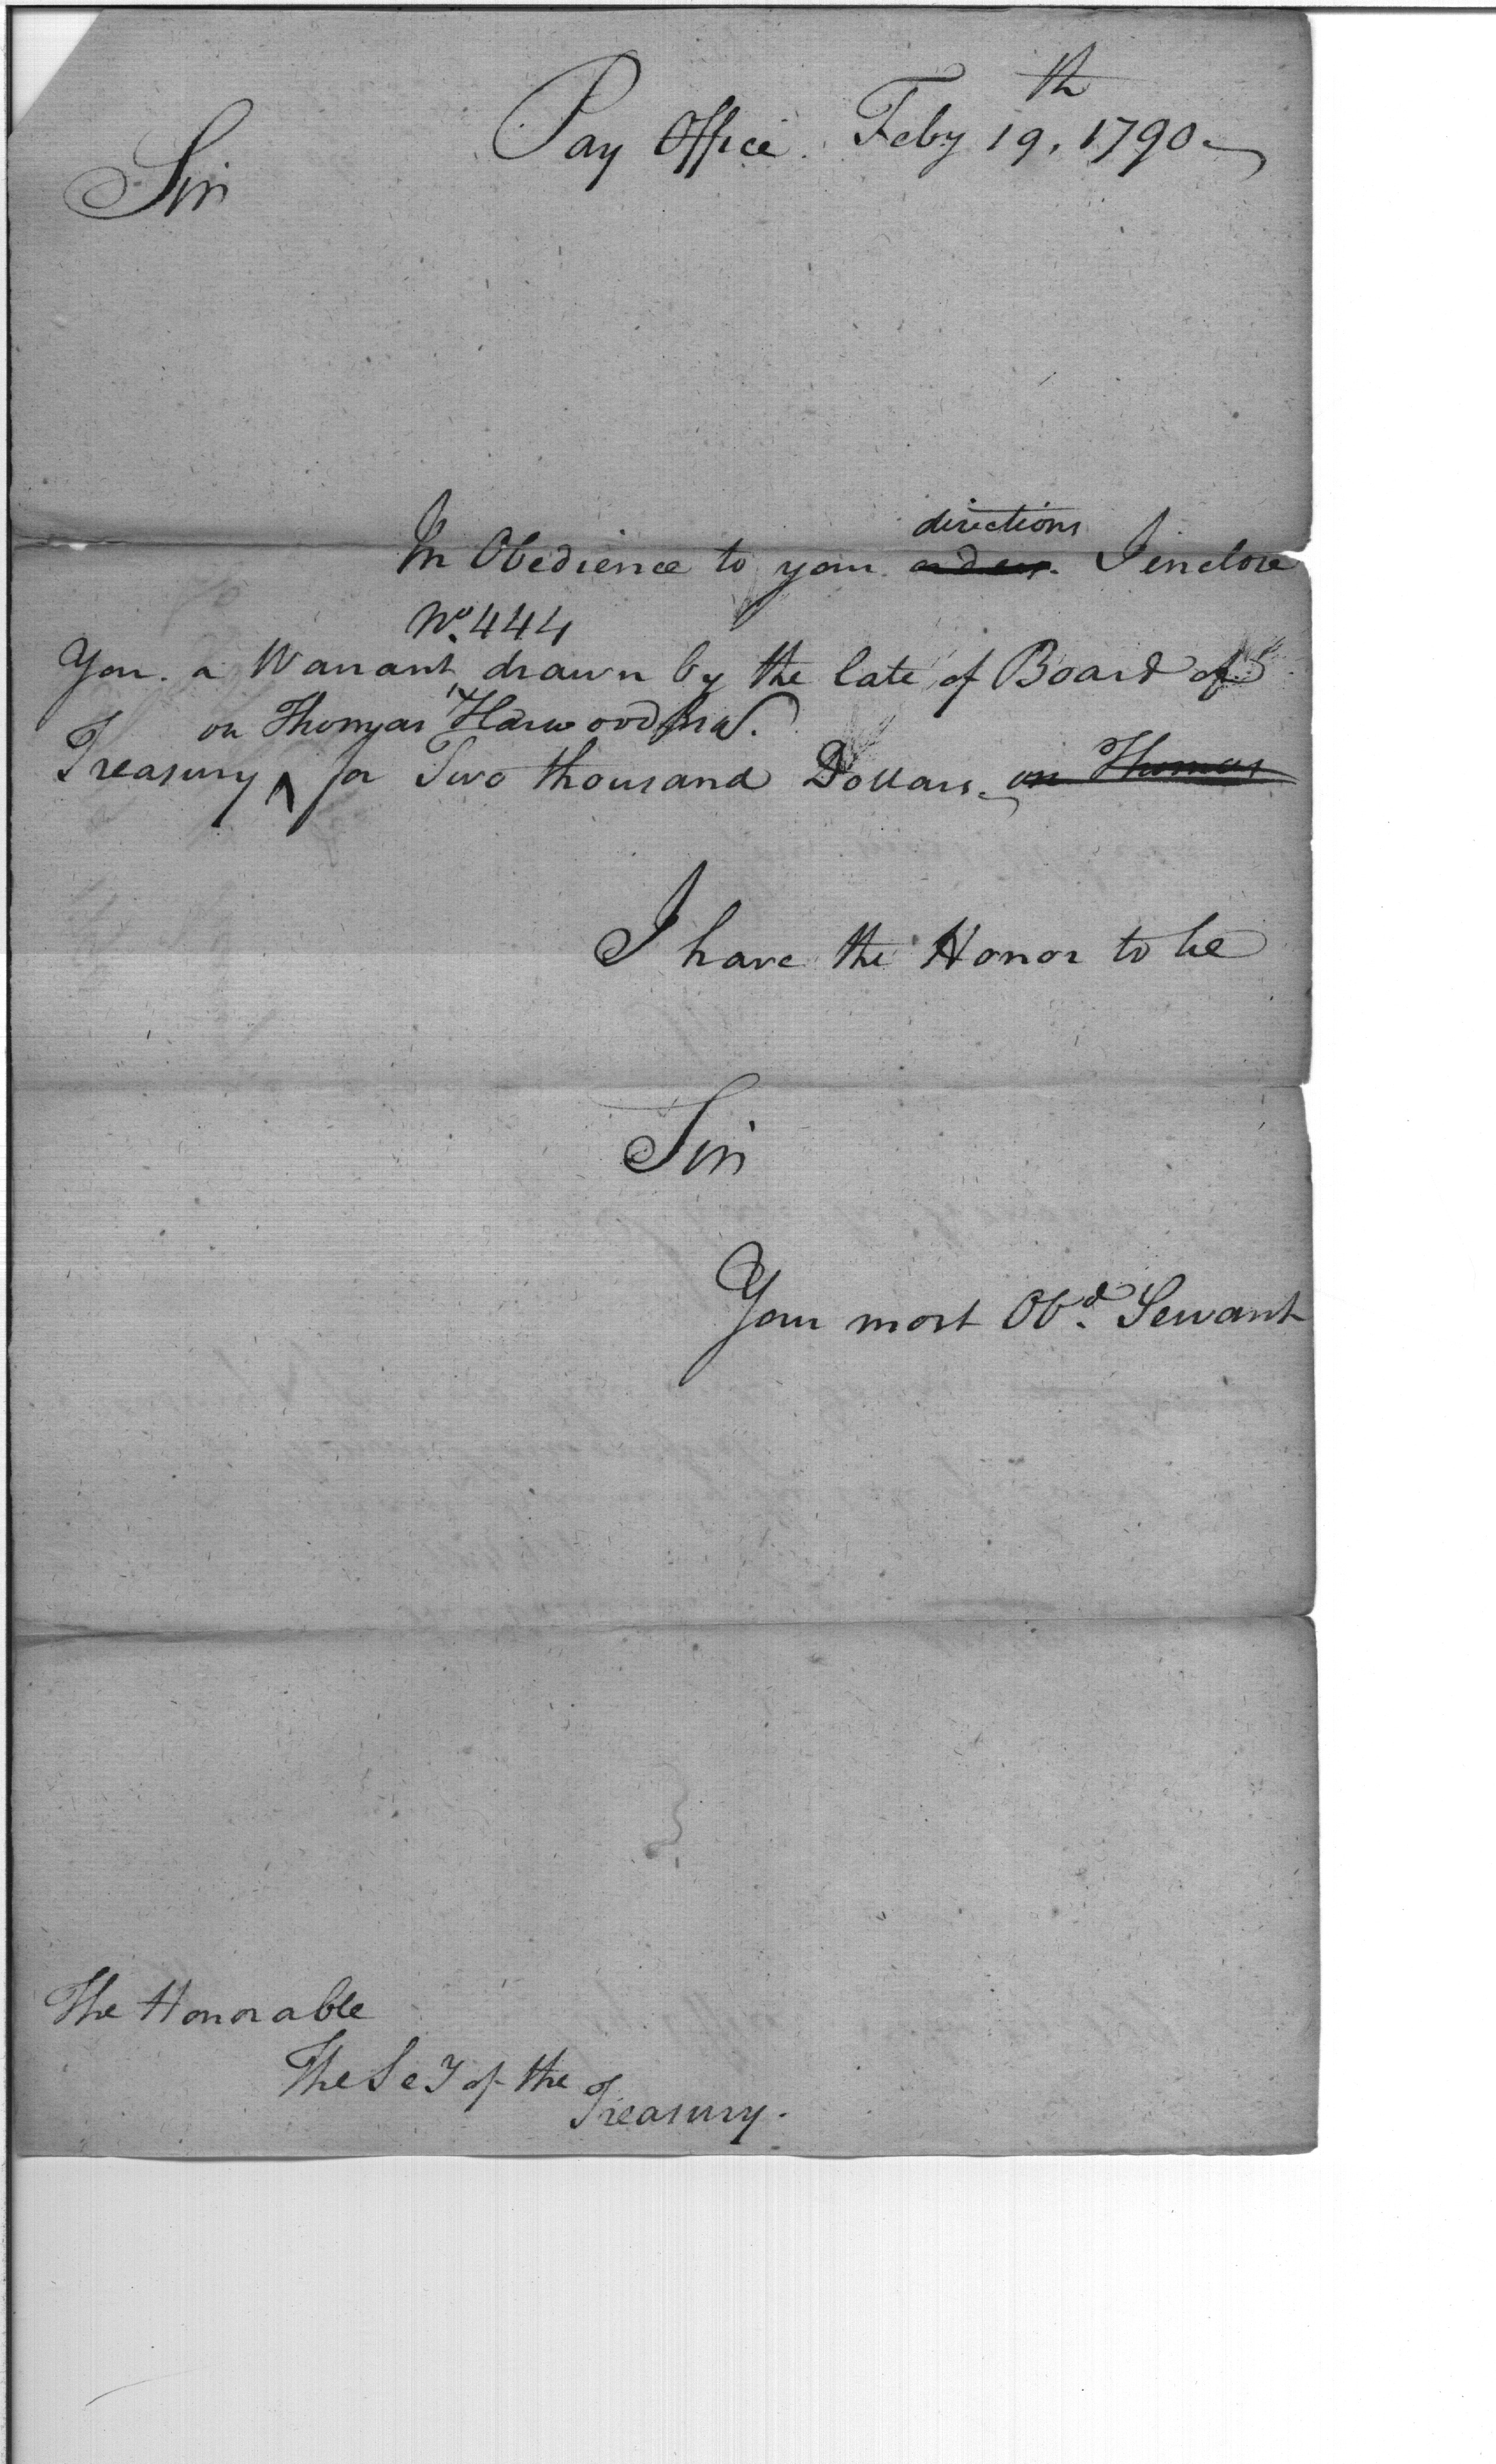 Pay Office. Feby 19th, 1790
Sir
directions
In Obedience to your orders. I inclose
No. 444
You. a Warrant drawn by the late of Board of
on Thomas Harwood
Treasury ^ for Two thousand Dollars. on Thomas
I have the Honor to be
Sir
Your most Obd. Servant
The Honorable
The Secy of the
Treasury.